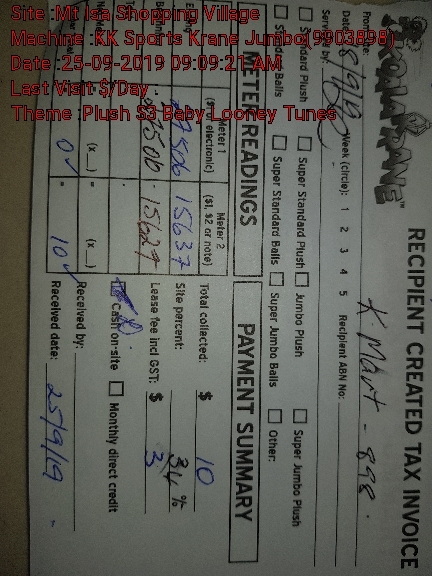 Site :Mt Isa Shopping Village
Machine :KK Sports Krane Jumbo(9903898)
Date :25-09-2019 09:09:21 AM
Last Visit $/Day
Theme :Plush S3 Baby Looney Tunes
KOALA KRANE™
RECIPIENT CREATED TAX INVOICE
From
K-Mart - 898.
Date: 18/9/19 Week (circle): 1 2 3 4 5 Recipient ABN No:
Serviced by:
Standard Plush Super Standard Plush Jumbo Plush Super Jumbo Plush
Standard Balls Super Standard Balls Super Jumbo Balls Other:
METER READINGS
PAYMENT SUMMARY
Meter 1
electronic)
Meter 2
($1, $2 or note)
15637
15627
(x__) =
(x__) =
0
10
Total collected: $ 10
Site percent: 34 %
Lease fee incl GST: $ 3
Cash on-site Monthly direct credit
Received by:
Received date: 25/9/19